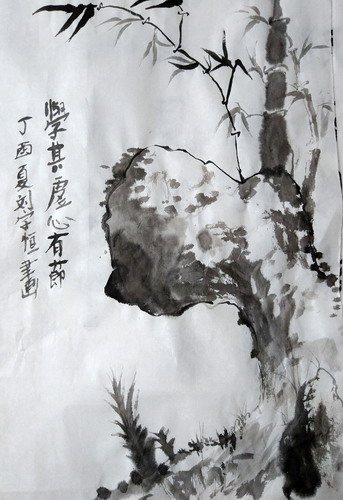 學其虛心有節
丁酉夏刘字恒画